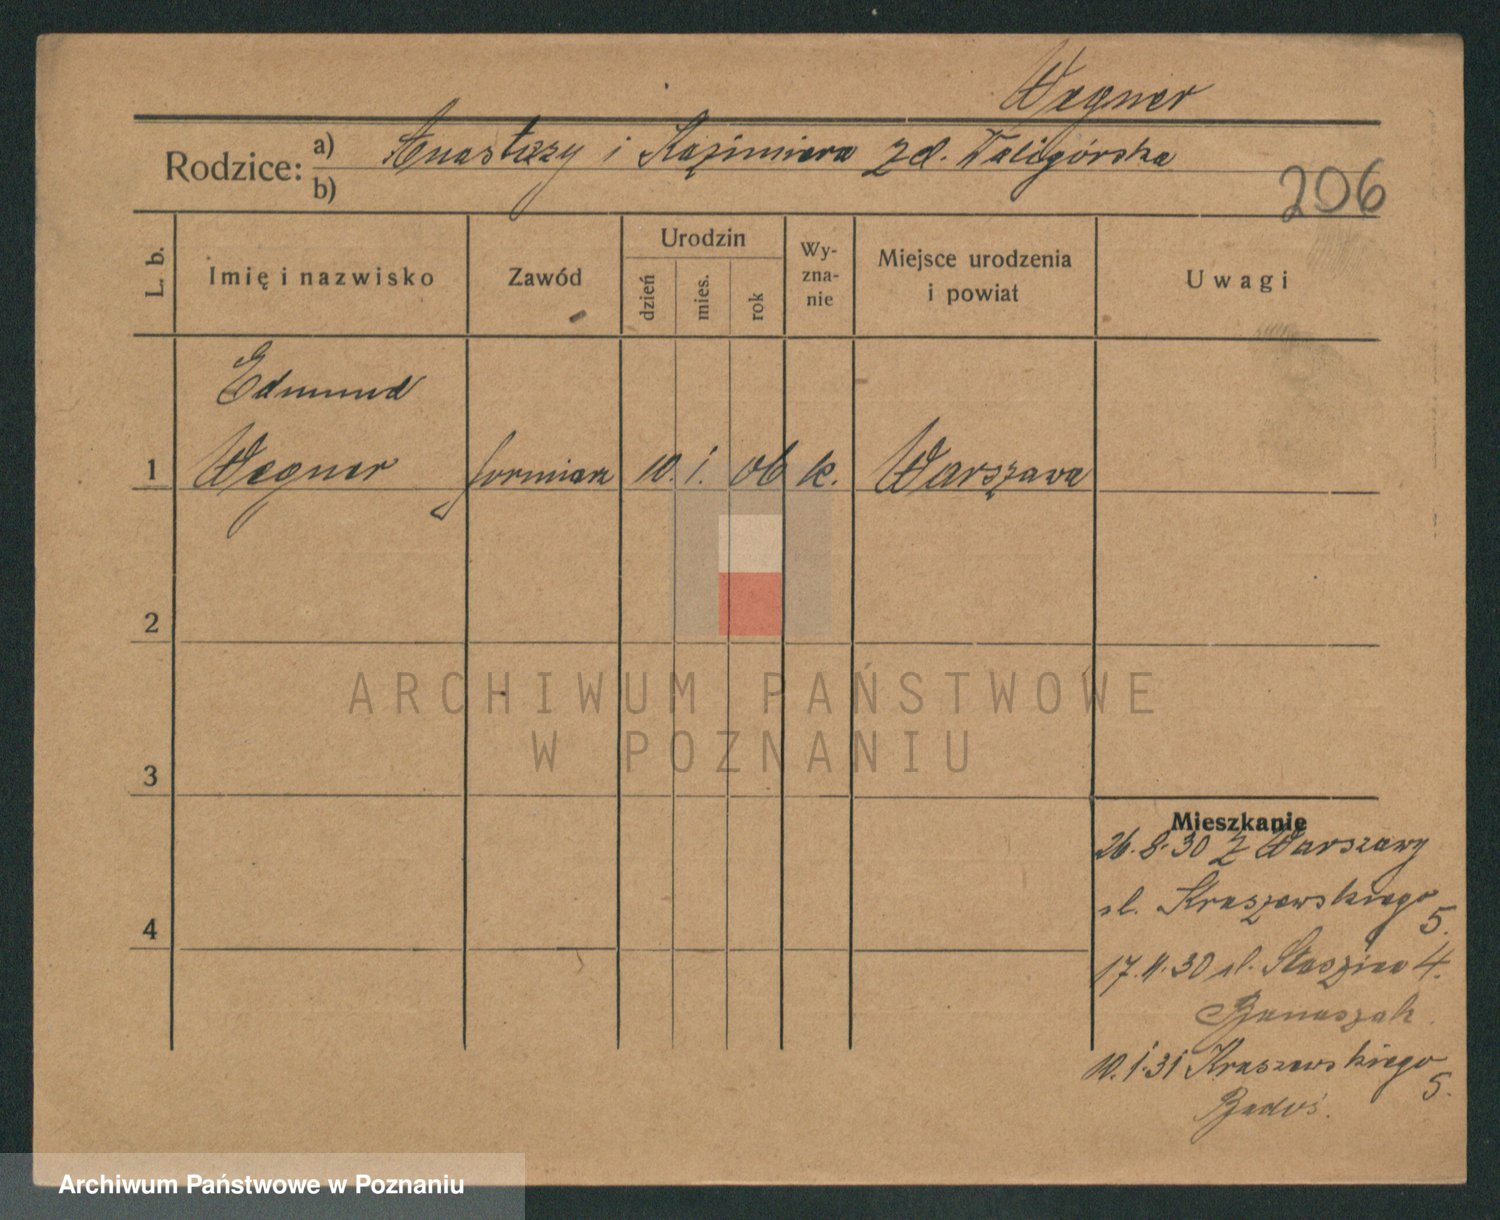 Wegner
Rodzice: a) Anastazy i Kazimiera zd. Waligórska
b)
206
L. b. Imię i nazwisko Zawód Urodzin dzień mies. rok Wy-zna-nie Miejsce urodzenia i powiat Uwagi
Edmund
1 Wegner formiarz 10. i. 06 k. Warszawa
2
ARCHIWUM PAŃSTWOWE
W POZNANIU
3
Mieszkanie
26.8.30 z Warszawy
ul. Kraszewskiego
5.
4
17.11.30 ul. Staszica 4.
Banaszak.
10.i.31 Kraszewskiego
5.
Archiwum Państwowe w Poznaniu